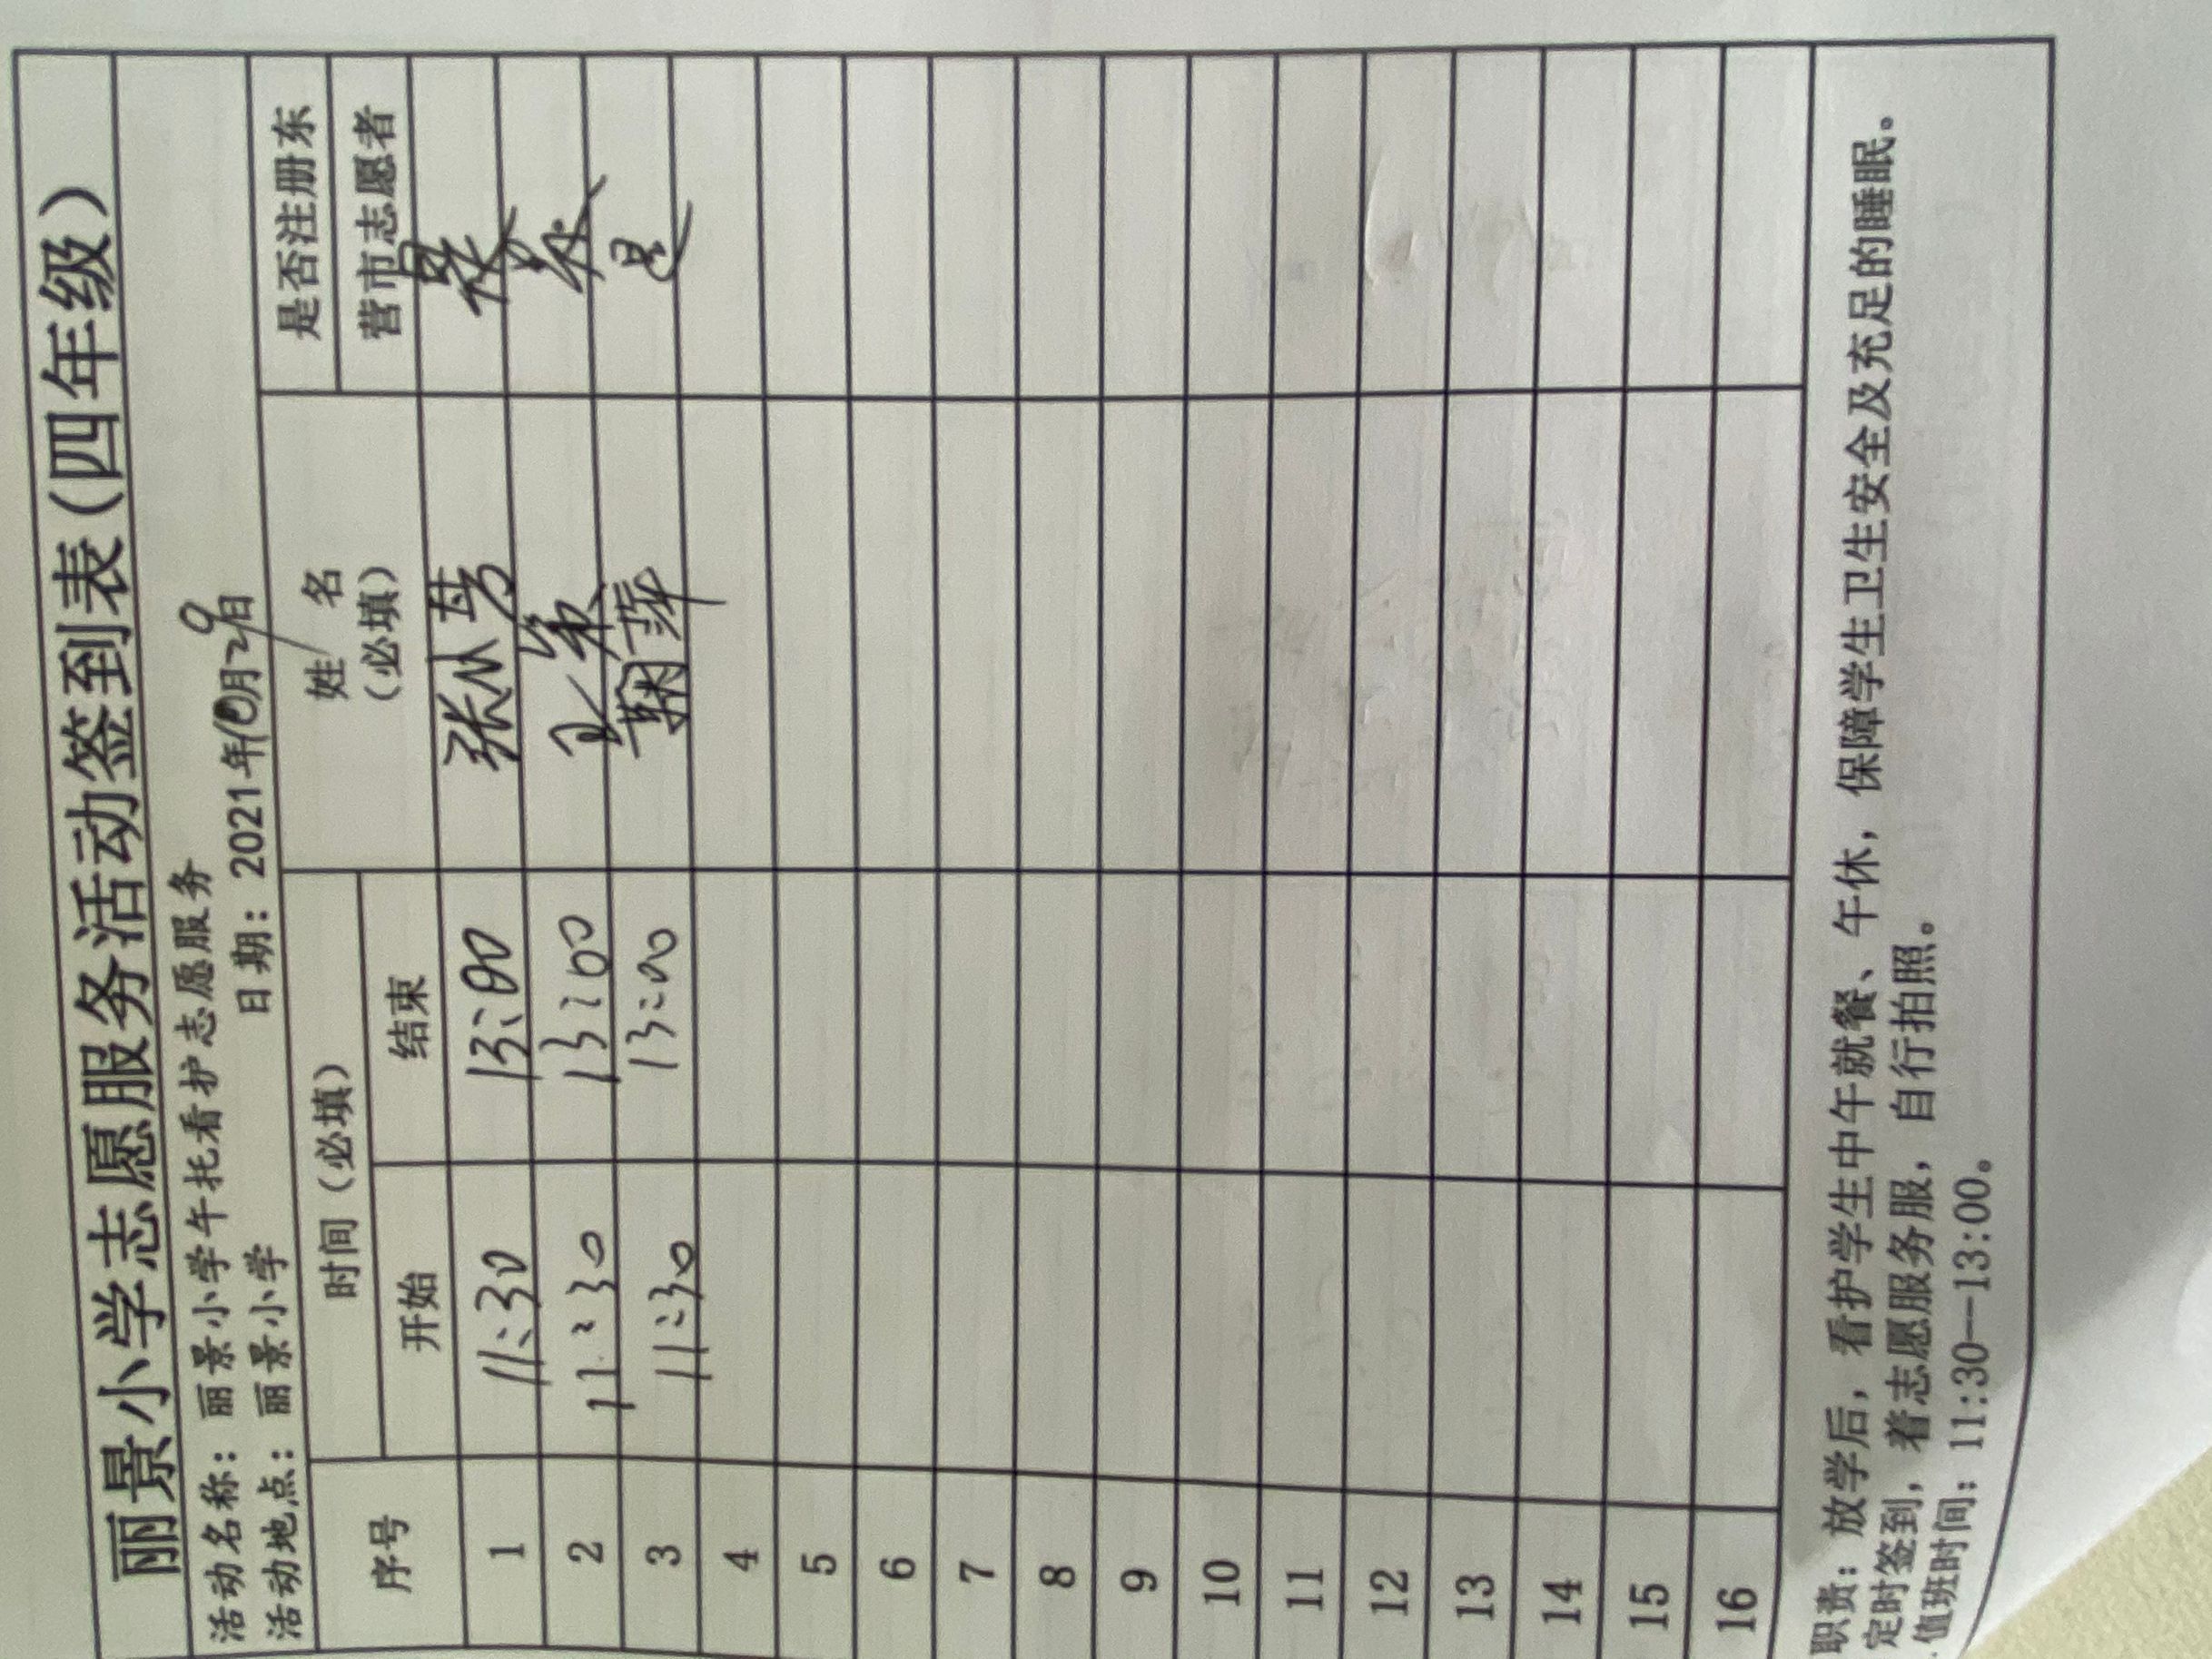 丽景小学志愿服务活动签到表(四年级)
活动名称：丽景小学午托看护志愿服务
活动地点：丽景小学 日期：2021年10月29日
序号 时间（必填） 姓 名（必填） 是否注册东营市志愿者
开始 结束
1 11:30 13:00 是
2 11:30 13:00 是
3 11:30 13:00 鞠萍 是
4
5
6
7
8
9
10
11
12
13
14
15
16
职责：放学后，看护学生中午就餐、午休，保障学生卫生安全及充足的睡眠。
定时签到，着志愿服务服，自行拍照。
值班时间：11:30—13:00。